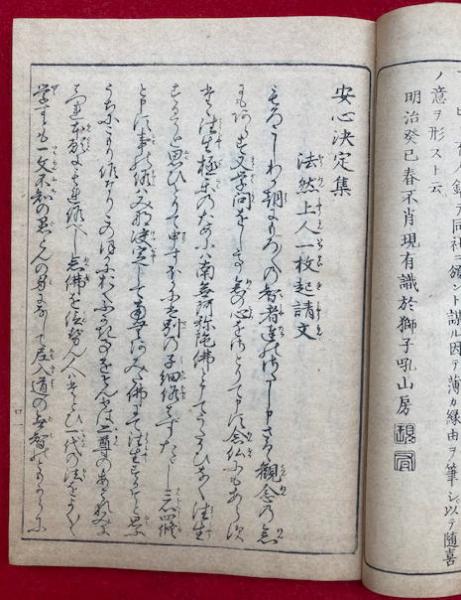 同社ニ頒ント謀ル因テ薄カ縁由ヲ筆シ以テ随喜
ノ意ヲ形スト云
明治癸巳春不肖現有識於獅子吼山房
安心決定集
法然上人一枚起請文
もろこしわか朝にもろ〱の智者達の沙汰し申さるゝ観念の念
にもあらす又学問をして念の心をさとりて申す念仏にもあらす
たゝ往生極楽のためには南無阿弥陀佛と申てうたかひなく往生
するそと思ひとりて申すほかには別の子細候はすたゝし三心四修
と申す事の候はみな決定して南無あみた佛にて往生するそと思ふ
うちにこもり候なりこのほかにおくふかき事を存せは二尊のあはれみに
はつれ本願にもれ候へし念佛を信せん人はたとひ一代の法をよく〱
学すとも一文不知の愚とんの身になして尼入道の無智のともからに